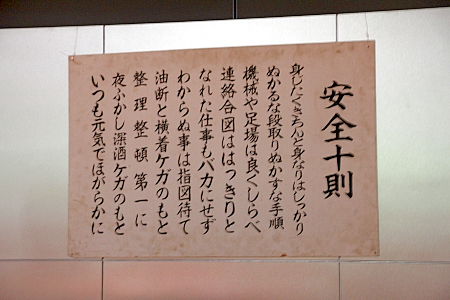 安全十則
身じたくきちんと身なりはしっかり
ぬかるな段取りぬかすな手順
機械や足場は良くしらべ
連絡合図ははっきりと
なれた仕事もバカにせず
わからぬ事は指図待て
油断と横着ケガのもと
整理整頓第一に
夜ふかし深酒ケガのもと
いつも元気でほがらかに